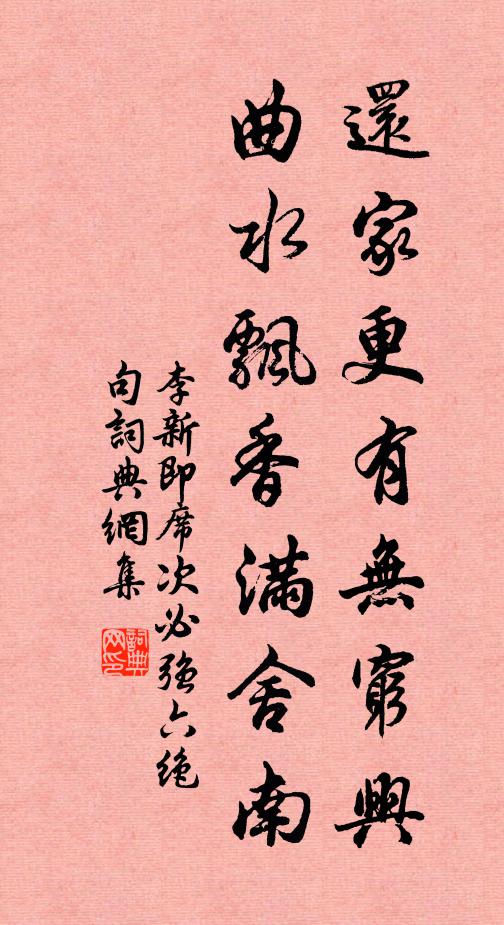 還家更有無窮興
曲水飄香滿舍南
李新即席次必強六絶
句詞典網集
詞典
网印